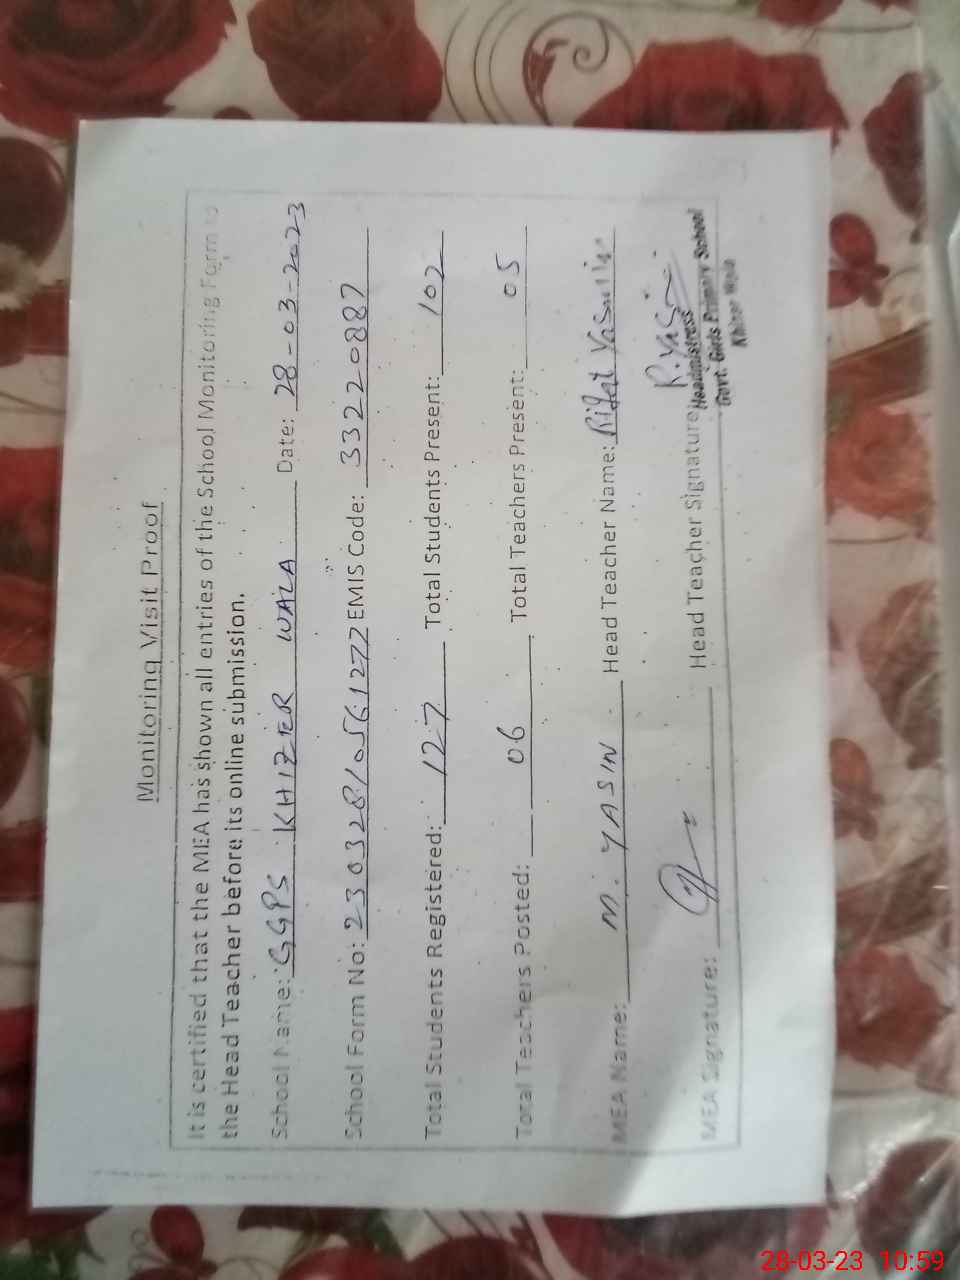 Monitoring Visit Proof
It is certified that the MEA has shown all entries of the School Monitoring Form to
the Head Teacher before its online submission.
School Name: GGPS KHIZER WALA Date: 28-03-2023
School Form No: 23032810561277 EMIS Code: 33220887
Total Students Registered: 127 Total Students Present: 102
Total Teachers Posted: 06 Total Teachers Present: 05
MEA Name: M. YASIN Head Teacher Name: Rifat Yasmin
MEA Signature: Head Teacher Signature R. Yas
Headmistress
Govt. Girls Primary School
Khizer Wala
28-03-23 10:59